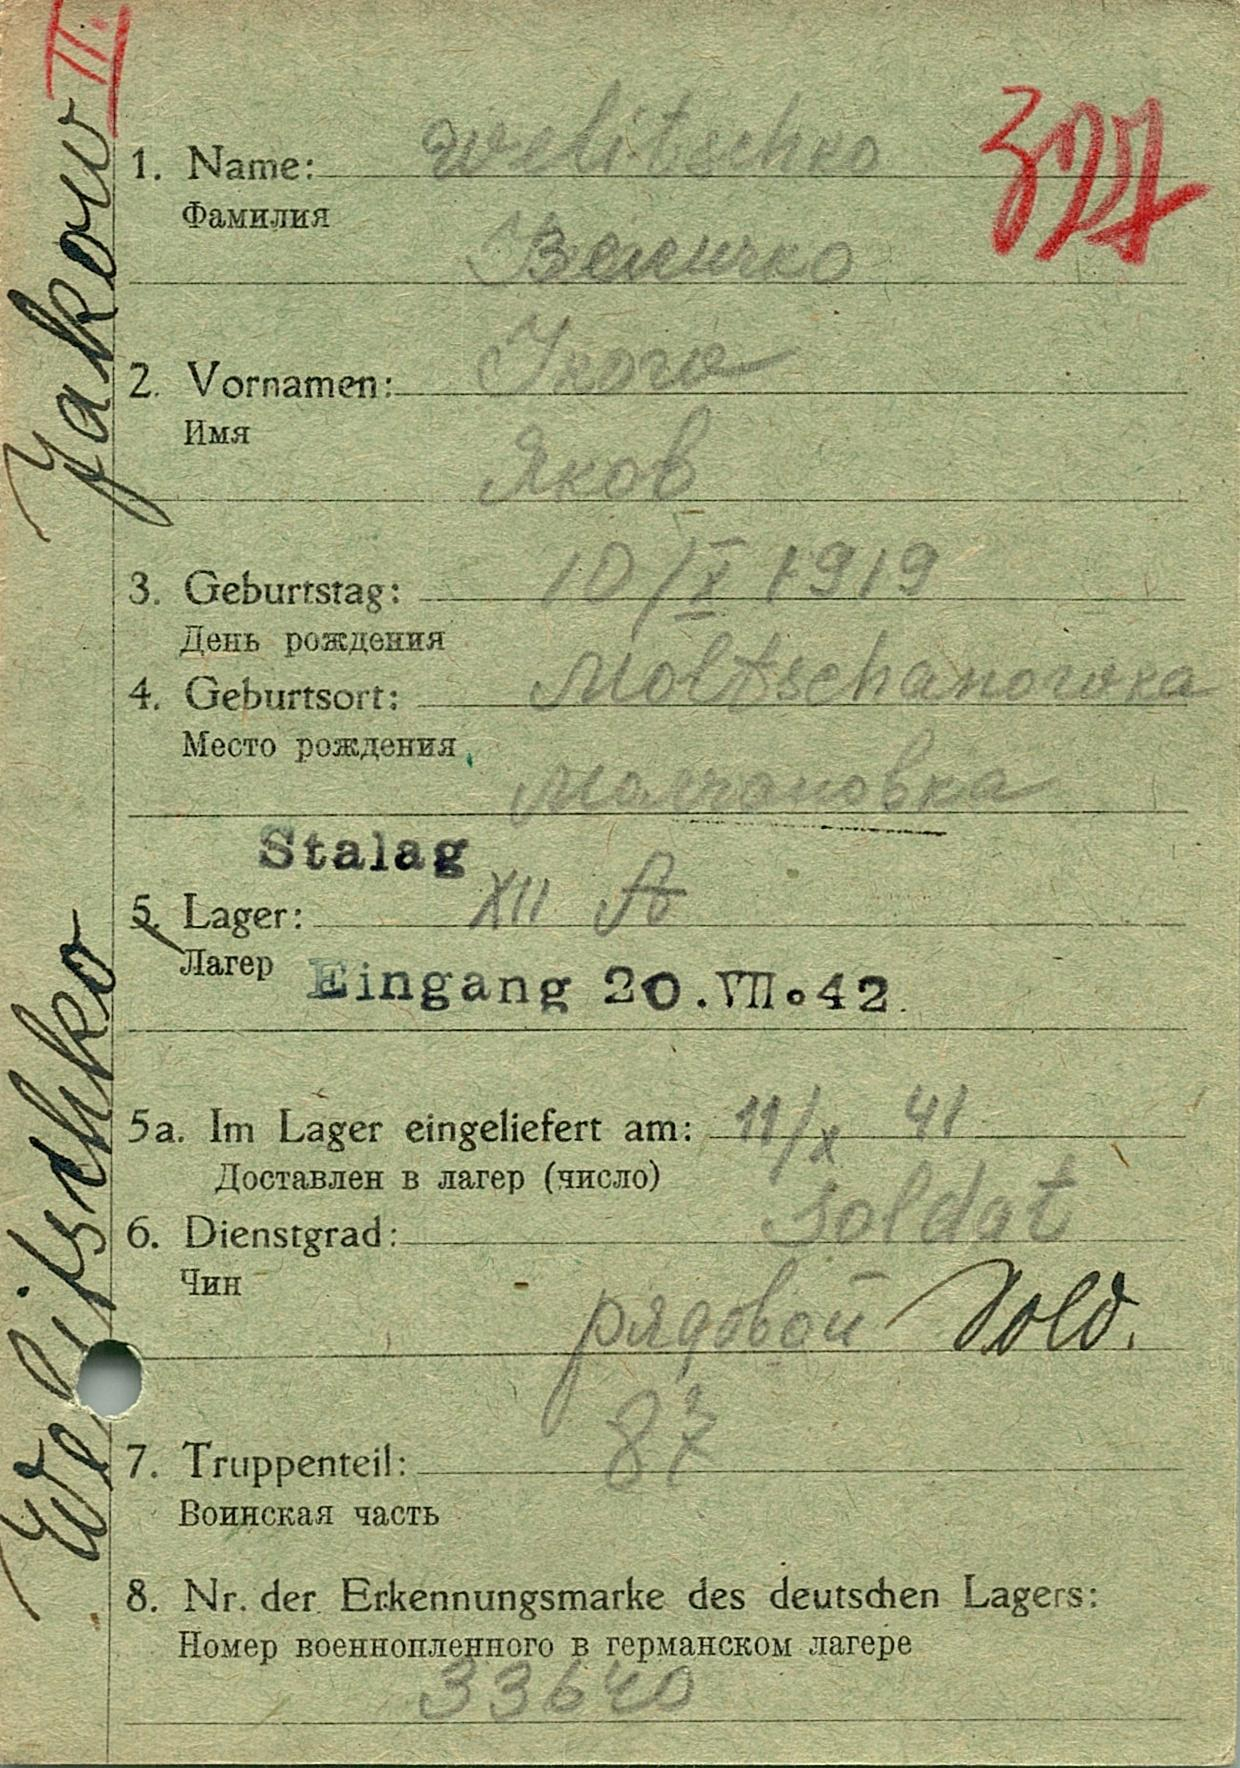 II.
327
1. Name: Welitschko
Фамилия
Величко
2. Vornamen:
Имя
Яков
3. Geburtstag: 10/X 1919
День рождения
4. Geburtsort: Moltschanowka
Место рождения
Молчановка
Stalag
5. Lager: XII A
Лагер
Eingang 20.VII.42.
5a. Im Lager eingeliefert am: 11/X 41
Доставлен в лагер (число)
6. Dienstgrad: soldat
Чин
рядовой Sold.
7. Truppenteil: 87
Воинская часть
8. Nr. der Erkennungsmarke des deutschen Lagers:
Номер военнопленного в германском лагере
33640
Welitschko Jakow